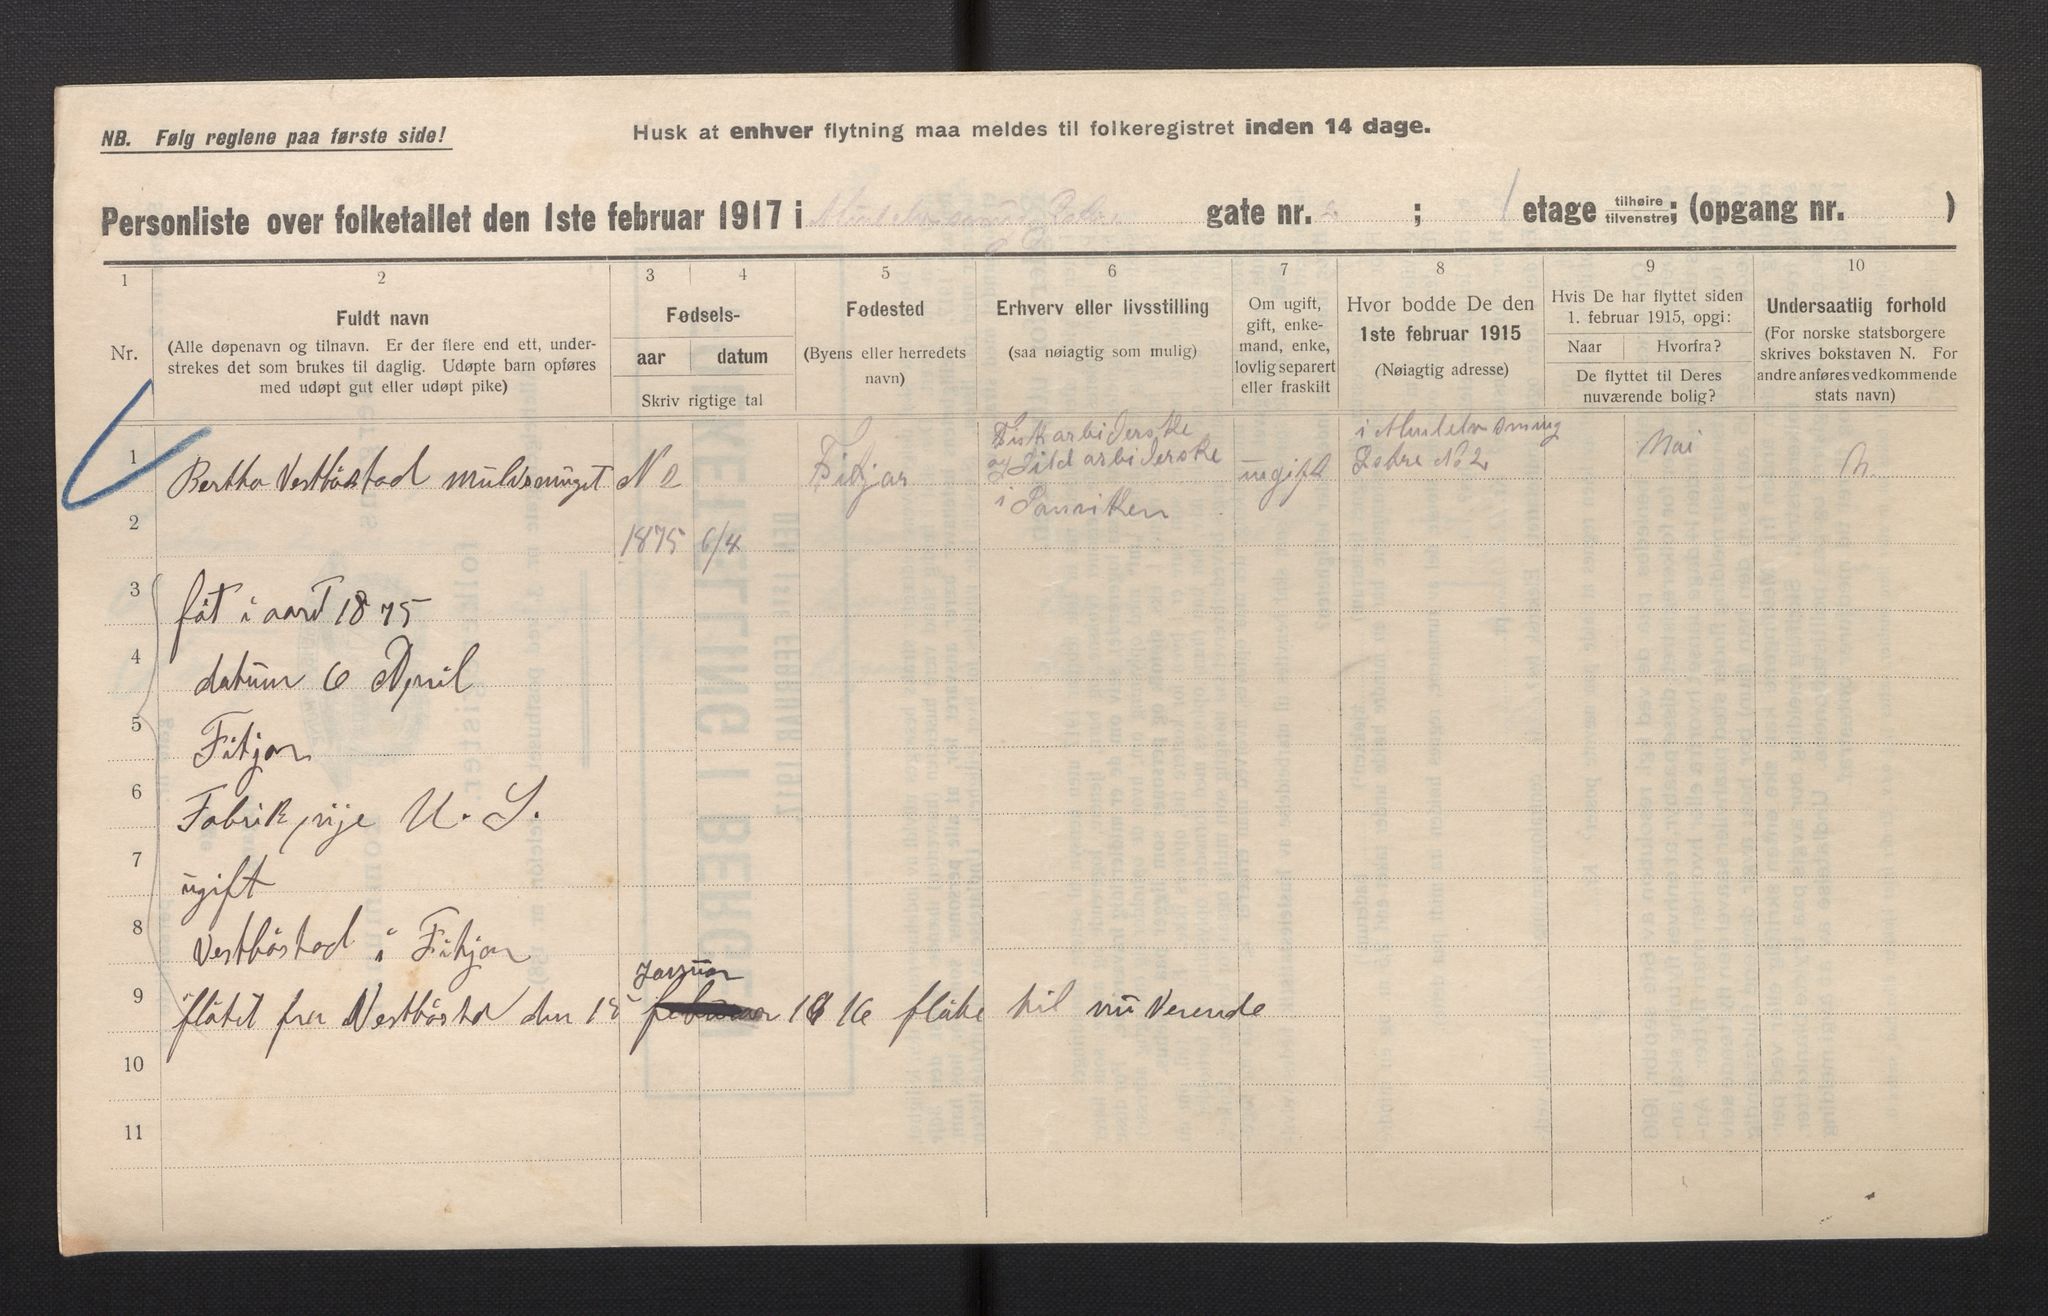 NB. Følg reglene paa første side!
Husk at enhver flytning maa meldes til folkeregistret inden 14 dage.
Personliste over folketallet den 1ste februar 1917 i gate nr. 2 ; 1 etage tilhøire tilvenstre; (opgang nr. )
1 2 3 4 5 6 7 8 9 10
Nr.
Fuldt navn
(Alle døpenavn og tilnavn. Er der flere end ett, under-
strekes det som brukes til daglig. Udøpte barn opføres
med udøpt gut eller udøpt pike)
Fødsels-
aar datum
Skriv rigtige tal
Fødested
(Byens eller herredets
navn)
Erhverv eller livsstilling
(saa nøiagtig som mulig)
Om ugift,
gift, enke-
mand, enke,
lovlig separert
eller fraskilt
Hvor bodde De den
1ste februar 1915
(Nøiagtig adresse)
Hvis De har flyttet siden
1. februar 1915, opgi:
Naar Hvorfra?
De flyttet til Deres
nuværende bolig?
Undersaatlig forhold
(For norske statsborgere
skrives bokstaven N. For
andre anføres vedkommende
stats navn)
1 Bertha Vestbøstad N 2
Fitjar
Fiskarbiderske
og Sildarbiderske
i Sanviken
ugift
No 2
Mai
N.
2 1875 6/4
3 føt i aaret 1875
4 datum 6 April
5 Fitjar
6 Fabrik pige U. S.
7 ugift
8 Vestbøstad i Fitjar
Januar
9 fløtet fra Vestbøstad den 15 februar 1916 fløtte til nu Verende
10
11